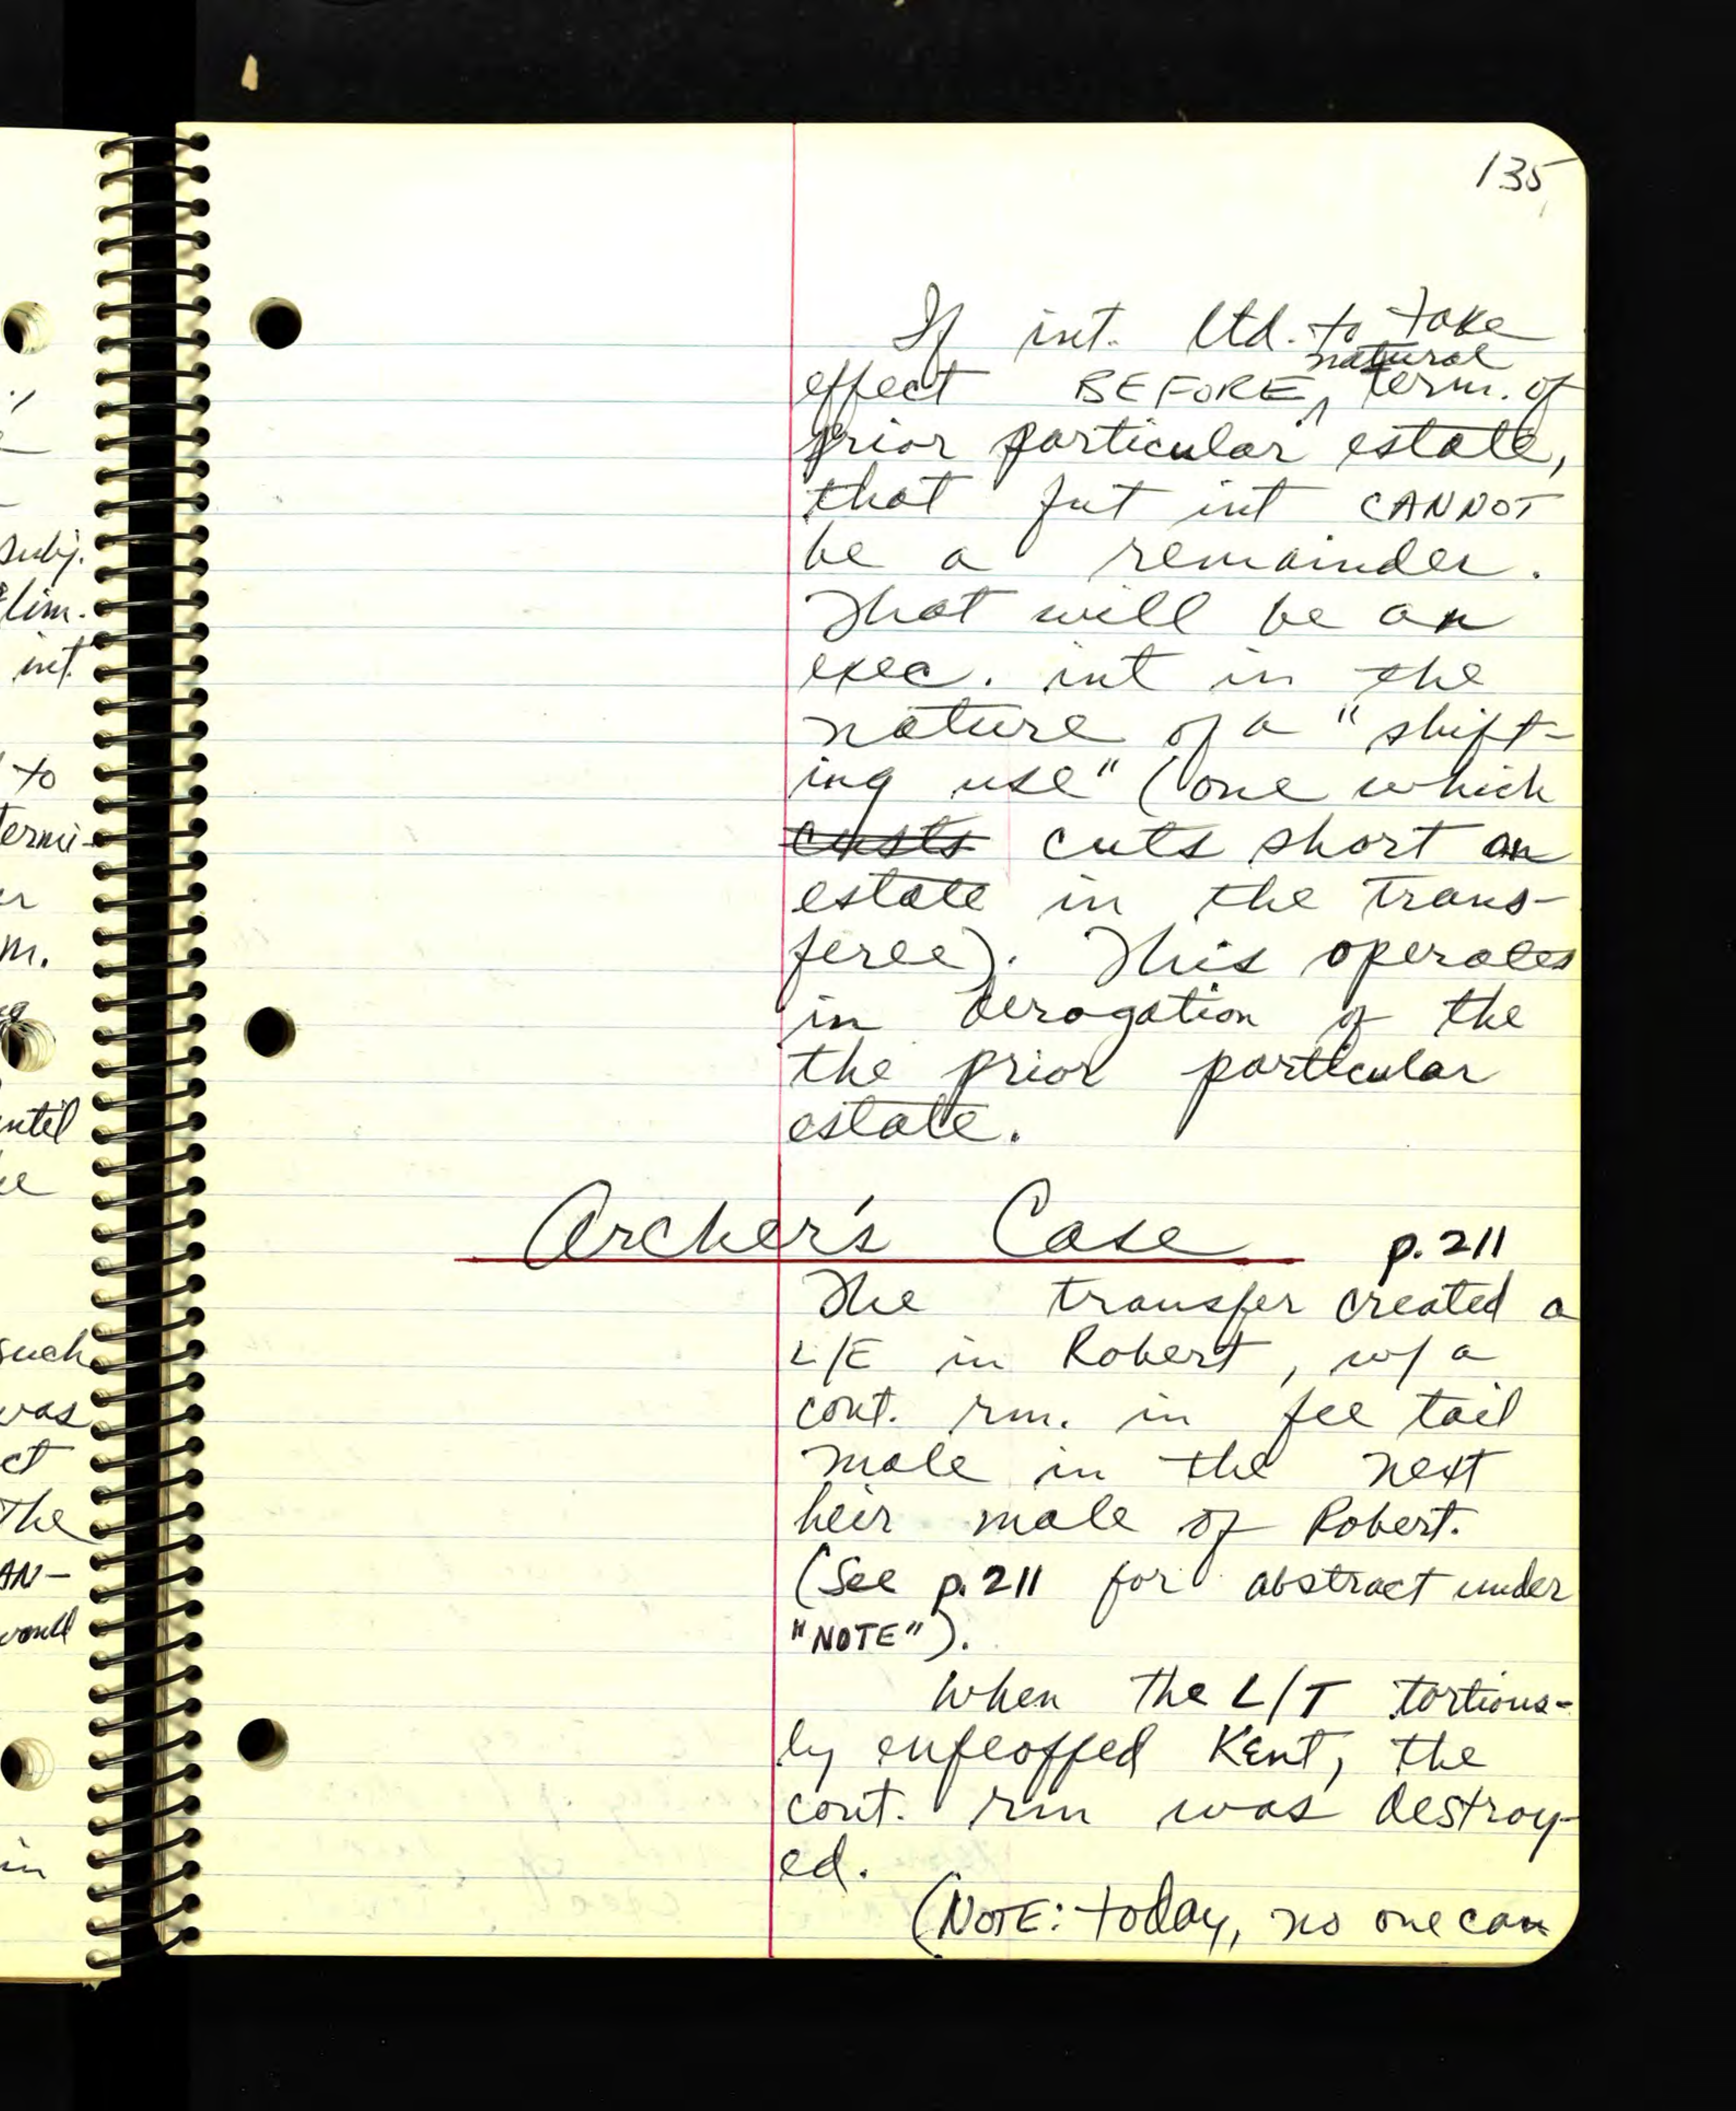 135
If int. ltd. to take
natural
effect BEFORE ^ term. of
prior particular estate,
that fut int CANNOT
be a remainder.
That will be an
exec. int in the
nature of a "shift-
ing use" (one which
custs cuts short an
estate in the trans-
feree). This operates
in derogation of the
the prior particular
estate.
Archer's Case p. 211
The transfer created a
L/E in Robert, w/ a
cont. rm. in fee tail
male in the next
heir male of Robert.
(See p. 211 for abstract under
"NOTE").
When the L/T tortious-
ly enfeoffed Kent, the
cont. rm was destroy-
ed.
(NOTE: today, no one can
subj.
lim.
int.
to
termi-
m.
until
such
was
ct
The
AN-
would
in